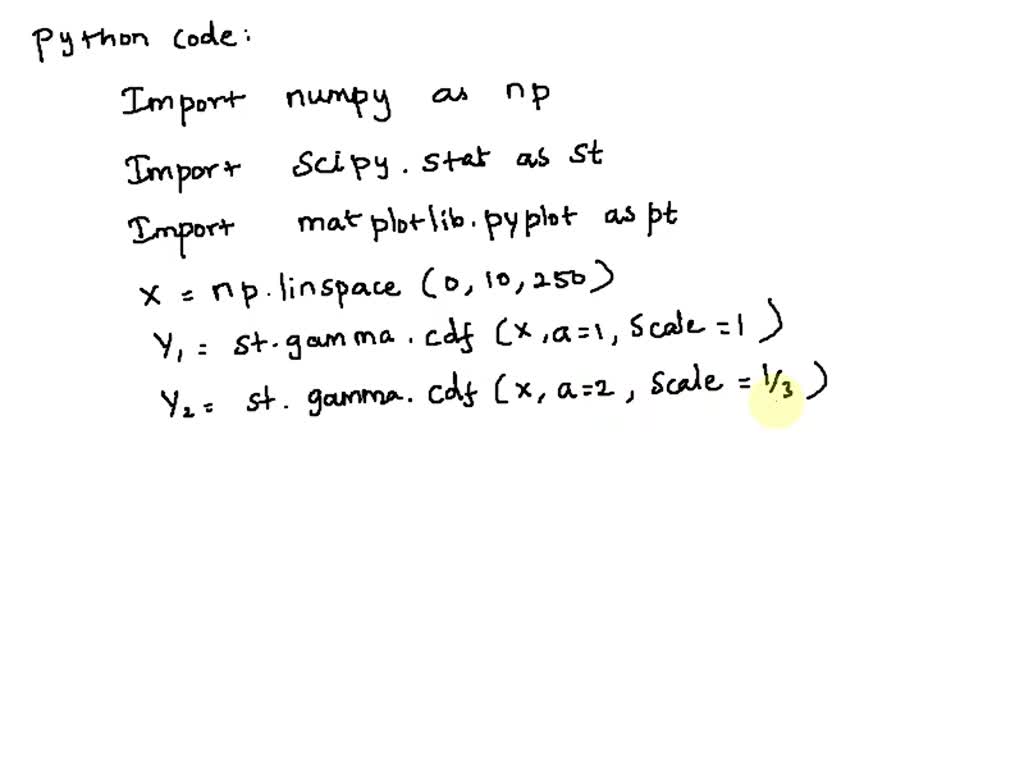 Python code:
Import numpy as np
Import scipy.stat as st
Import matplotlib.pyplot as pt
x = np.linspace (0, 10, 250)
Y₁ = st.gamma.cdf (x, a=1, Scale =1 )
Y₂ = st. gamma. cdf (x, a=2, Scale = 1/3 )